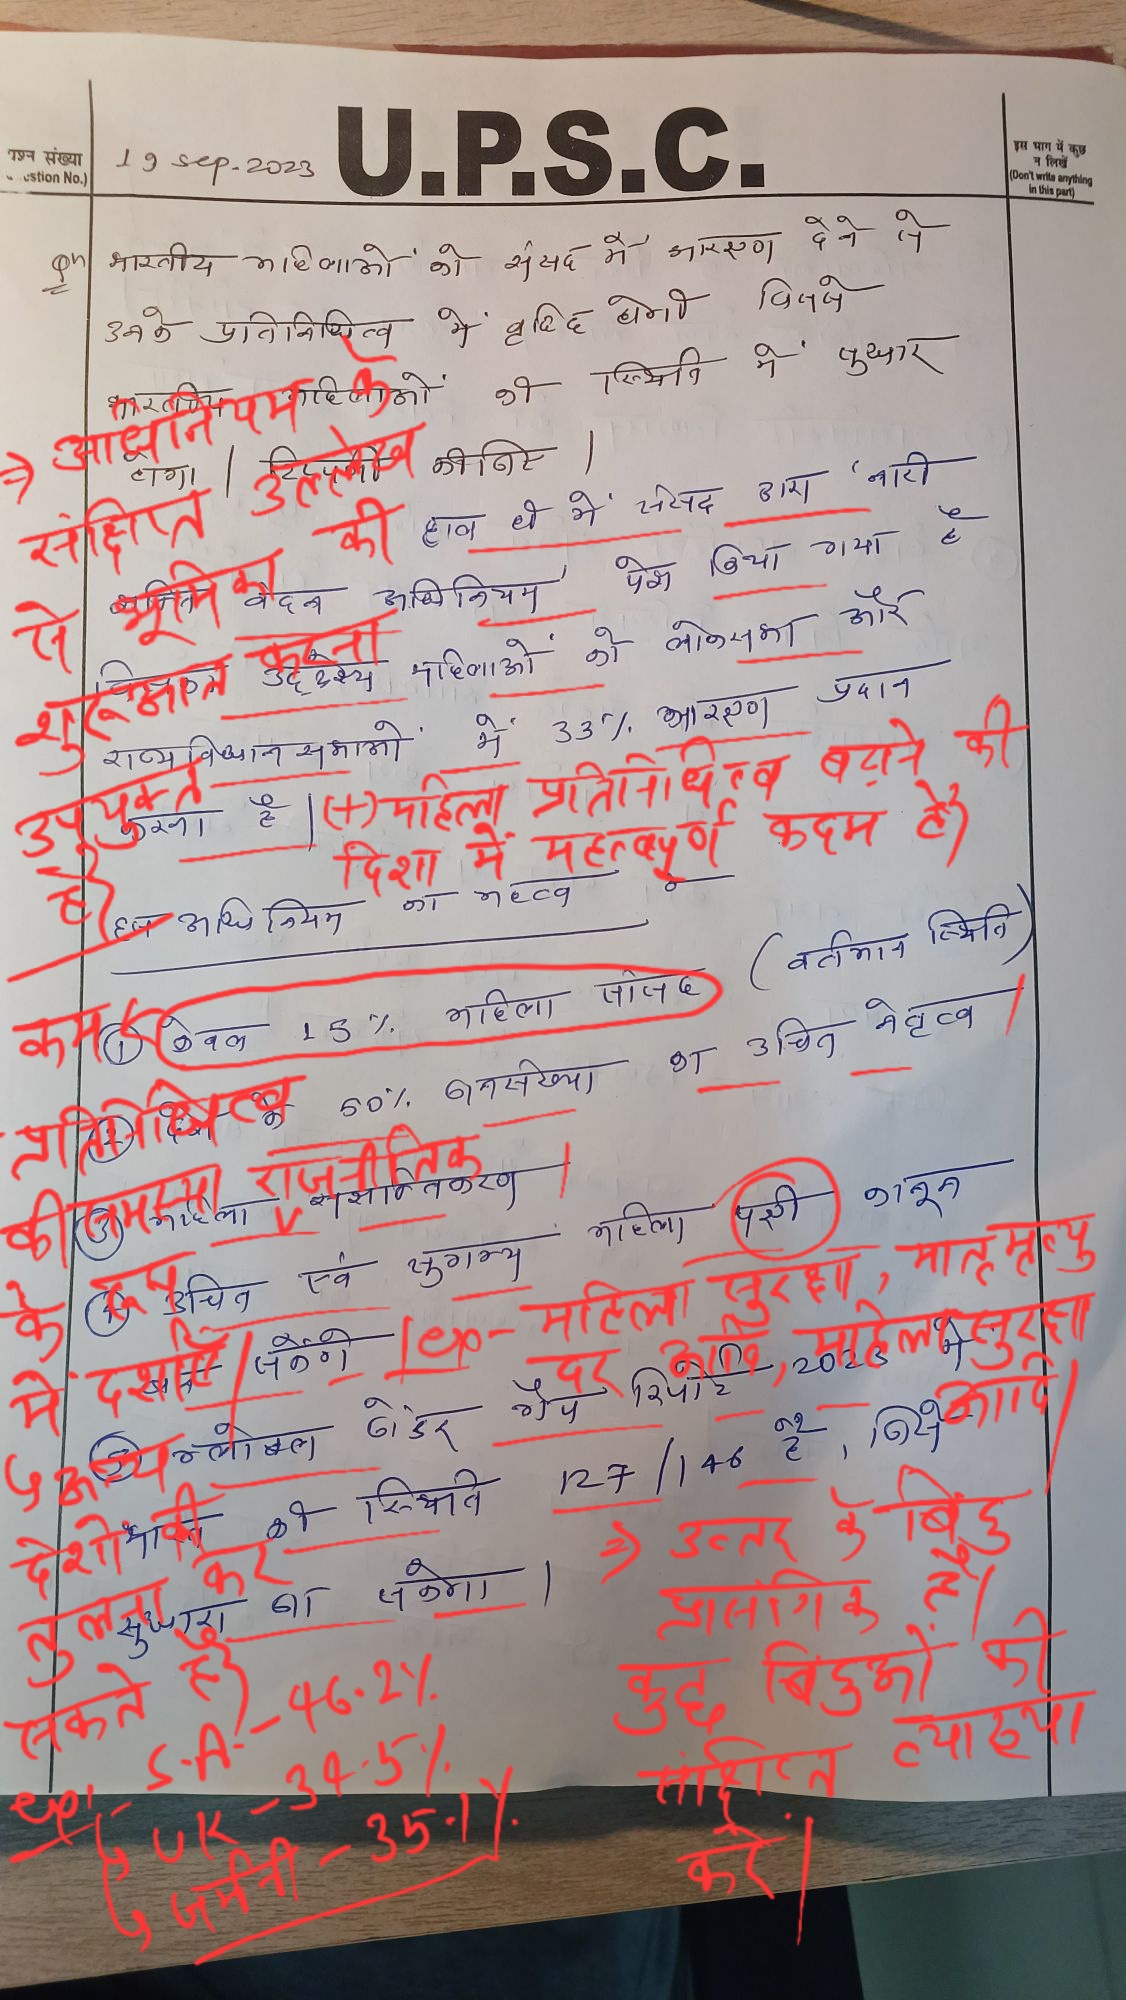 प्रश्न संख्या
(Question No.)
19 Sep. 2023
U.P.S.C.
इस भाग में कुछ
न लिखें
(Don't write anything
in this part)
Qn भारतीय महिलाओं को संसद में आरक्षण देने से
उनके प्रतिनिधित्व में वृद्धि होगी जिससे
भारतीय महिलाओं की स्थिति में सुधार
होगा। टिप्पणी कीजिए।
हाल ही में संसद द्वारा 'नारी
शक्ति वंदन अधिनियम' पेश किया गया है
जिसका उद्देश्य महिलाओं को लोकसभा और
राज्य विधानसभाओं में 33% आरक्षण प्रदान
करना है।
(+) महिला प्रतिनिधित्व बढ़ाने की
दिशा में महत्वपूर्ण कदम है।
⇒ अधिनियम के
संक्षिप्त उल्लेख
से भूमिका की
शुरूआत करना
उपयुक्त
है।
इस अधिनियम का महत्व :-
① केवल 15% महिला सांसद (वर्तमान स्थिति)
② देश के 50% जनसंख्या का उचित नेतृत्व।
③ महिला राजनीतिक सशक्तिकरण।
④ उचित एवं सुगम्य महिला पक्षी कानून
बन सकेंगे।
ex- महिला सुरक्षा, मातृ मृत्यु
दर आदि, महिला सुरक्षा
आदि।
⑤ ग्लोबल जेंडर गैप रिपोर्ट, 2023 में
भारत की स्थिति 127/146 है, जिसे
सुधारा जा सकेगा।
कम
प्रतिनिधित्व
की समस्या
के रूप
में दर्शाएं।
↳ अन्य
देशों की
तुलना कर
सकते हैं
ex:- S.A. - 46.2%
↳ UK - 34.5%
↳ जर्मनी - 35.1%
⇒ उत्तर के बिंदु
प्रासंगिक हैं।
कुछ बिंदुओं की
संक्षिप्त व्याख्या
करें।